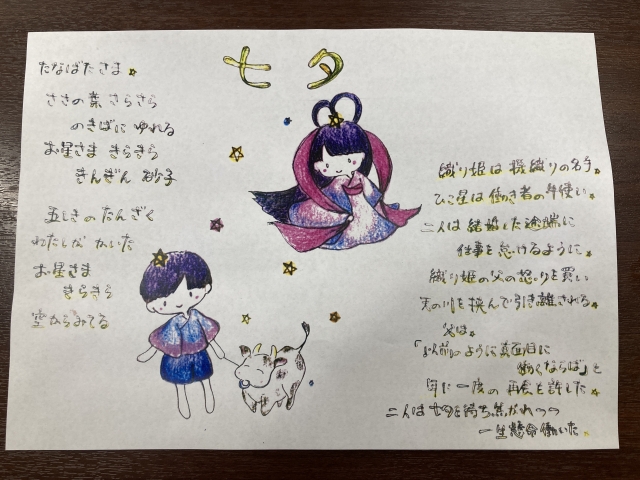 七夕
たなばたさま
ささの葉 さらさら
のきばに ゆれる
お星さま きらきら
きんぎん 砂子
五しきの たんざく
わたしが かいた
お星さま
きらきら
空からみてる
織り姫は 機織りの名手。
ひこ星は 働き者の牛使い。
二人は 結婚した途端に
仕事を怠けるように。
織り姫の父の怒りを買い
天の川を挟んで引き離される。
父は、
「以前のように真面目に
働くならば」と
年に一度の 再会を許した。
二人は 七夕を待ち焦がれつつ
一生懸命働いた。